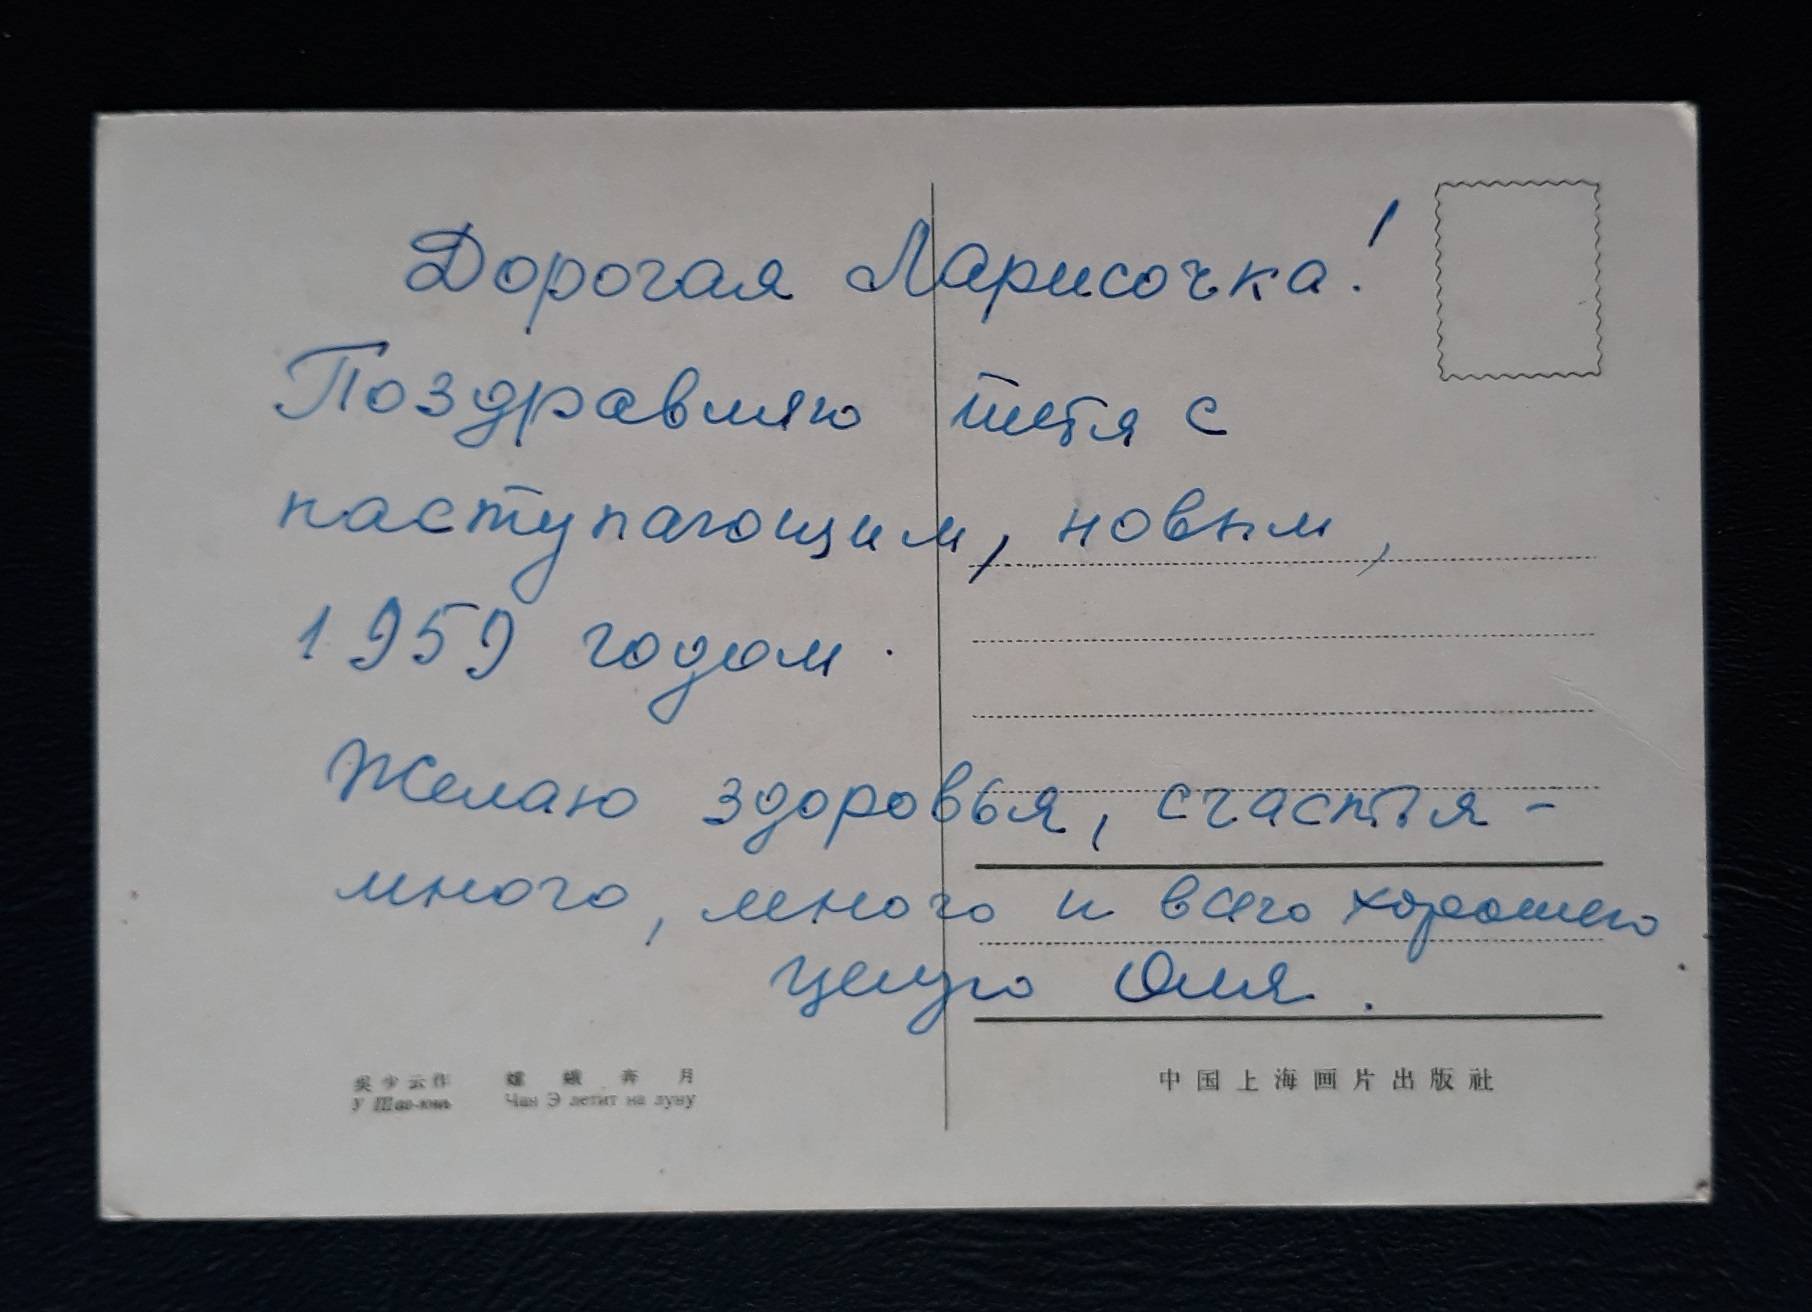 Дорогая Ларисочка!
Поздравляю тебя с
наступающим, новым,
1959 годом.
Желаю здоровья, счастья -
много, много и всего хорошего
целую Оля.
吳少云作 嫦娥奔月
У Шао-юнь Чан Э летит на луну
中国上海画片出版社